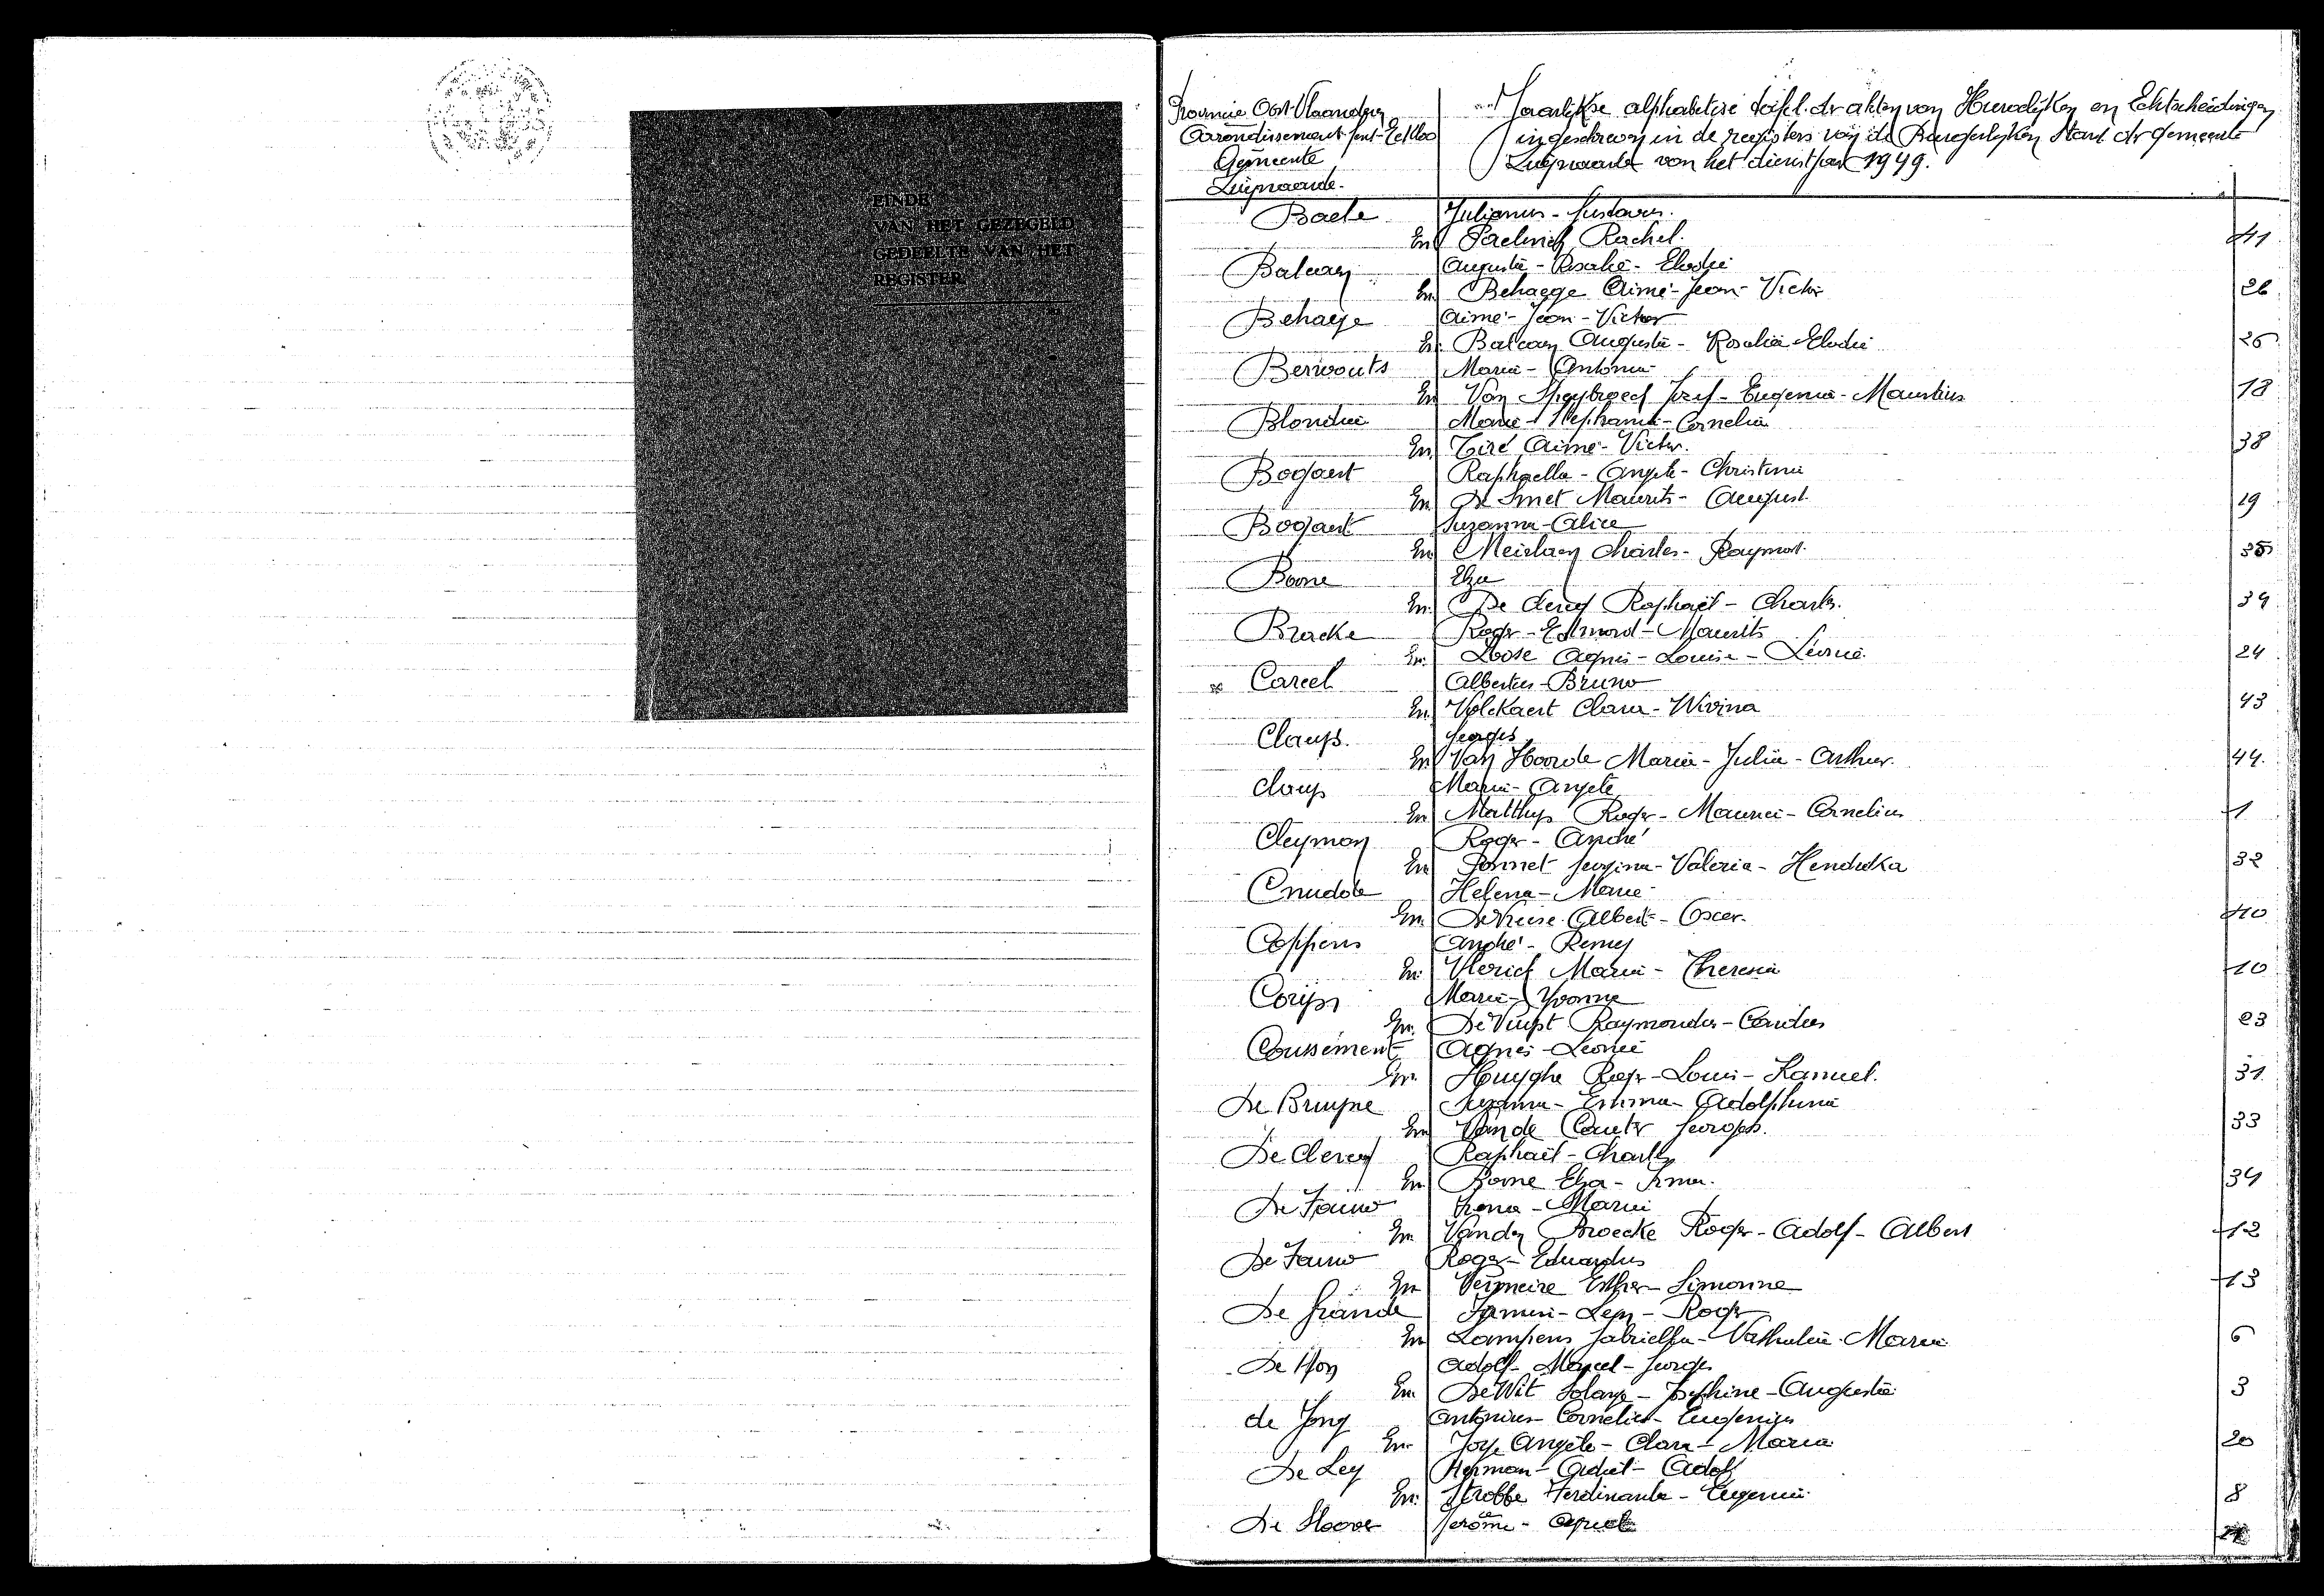 EINDE
VAN HET GEZEGELD
GEDEELTE VAN HET
REGISTER
Provincie Oost-Vlaanderen
Arrondissement Gent-Eekloo
Gemeente
Zwijnaarde.
Jaarlijkse alphabetise tafel der akten van Huwelijken en Echtscheidingen
ingeschreven in de registers van de Burgerlijken Stand der gemeente
Zwijnaarde van het dienstjaar 1949.
Baele Julianus - Gustavus.
En Rachel. 41
Balcaen Augusta - Rosalie - Elodie
En Behaege Aimé - Jean - Victor 26
Behaege Aimé - Jean - Victor
En Balcaen Augusta - Rosalie - Elodie 26
Berwouts Maria - Antonia
En Van Speybroeck Jozef - Eugenia - Mauritius 18
Blondie Maria - Stephanie - Cornelia
En Aimé - Victor. 38
Bogaert Raphaella - Angele - Christina
En De Smet Maurits - August 19
Bogaert Suzanna - Alice
En Charles - Raymond. 35
Boone Elza
En De Clercq Raphaël - Charles. 34
Bracke Roger - Edmond - Maurits
En Loose Agnes - Louise - Léonie 24
Careel Albertus - Bruno
En Volckaert Clara - Wivina 43
Claeys. Georges
En Van Hoorde Maria - Julia - Arthur. 44.
Claeys Maria - Angele
En Matthys Roger - Maurice - Cornelius 1
Cleyman Roger - André
En Georgina - Valeria - Hendrika 32
Cnudde Helena - Marie
En Albert - Oscar. 40
Coppens André - Remy
En Vlerick Maria - Theresia 10
Coryn Maria - Yvonne
En De Vuyst Raymondus - 23
Coussement Agnes - Leonie
En Huyghe Roger - Louis - Kamuel. 31
De Bruyne Suzanna - Emma - Adolphina
En Van de Georges. 33
De Clercq Raphaël - Charles
En Boone Elza - Irma. 34
De Fauw Irena - Maria
En Vanden Broecke Roger - Adolf - Albert 12
De Fauw Roger - Eduardus
En Vermeire Esther - Simonne 13
De Grande Leon - Roger
En Lampens Gabriella - Nathalia - Maria 6
Adolf - Marcel - Georges
En De Wit Solange - Josephine - Augusta 3
de Jong Antonius - Cornelius - Eugenius
En Joye Angele - Clara - Maria 20
De Ley Herman - Adolf
En Strobbe Ferdinanda - Eugenia 8
De Moor Jerôme